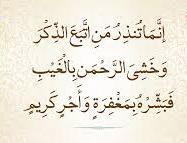 إِنَّمَا تُنذِرُ مَنِ اتَّبَعَ الذِّكْرَ
وَخَشِيَ الرَّحْمَن بِالْغَيْبِ
فَبَشِّرْهُ بِمَغْفِرَةٍ وَأَجْرٍ كَرِيمٍ